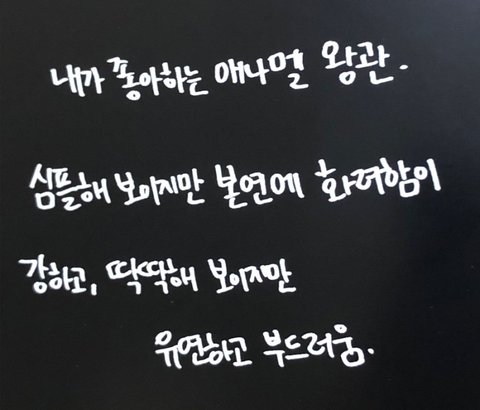 내가 좋아하는 애나멜 왕관.
심플해 보이지만 본연에 화려함이
강하고, 딱딱해 보이지만
유연하고 부드러움.